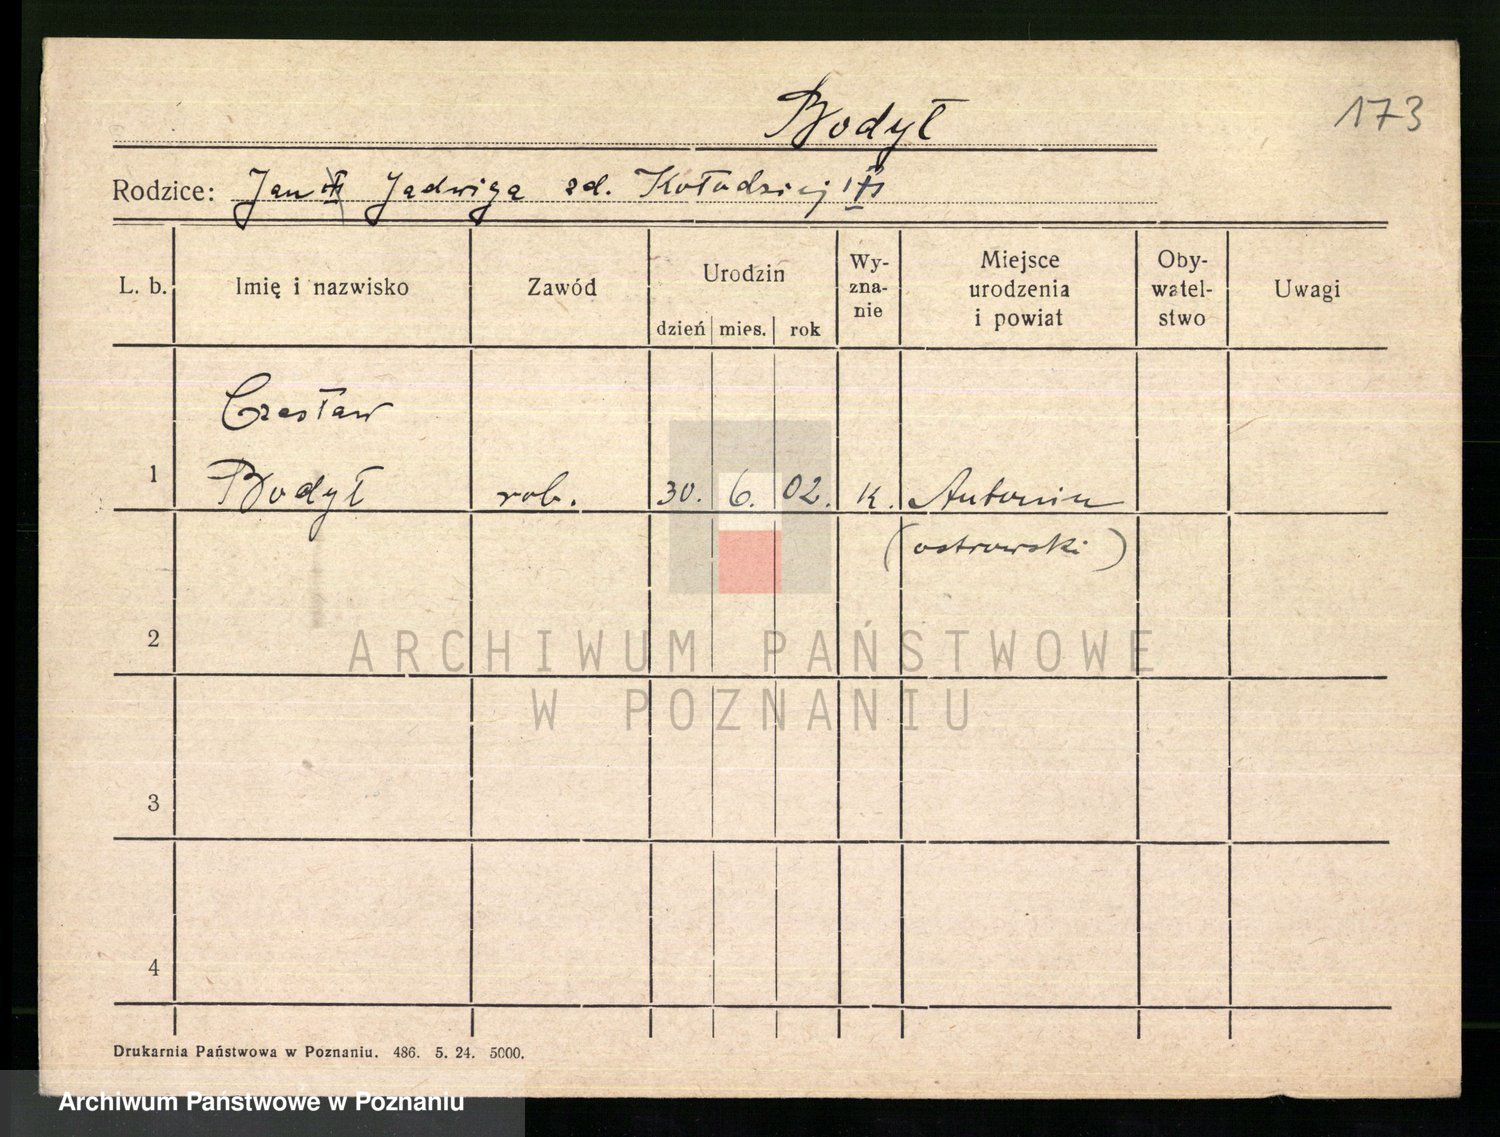 Bodył
173
Rodzice: Jan Jadwiga zd. Kołodziej
L. b. Imię i nazwisko Zawód Urodzin dzień mies. rok Wy-zna-nie Miejsce urodzenia i powiat Oby-watel-stwo Uwagi
Czesław
1 Bodył rob. 30. 6. 02. k. Antonin
(ostrowski)
2
ARCHIWUM PAŃSTWOWE
W POZNANIU
3
4
Drukarnia Państwowa w Poznaniu. 486. 5. 24. 5000.
Archiwum Państwowe w Poznaniu